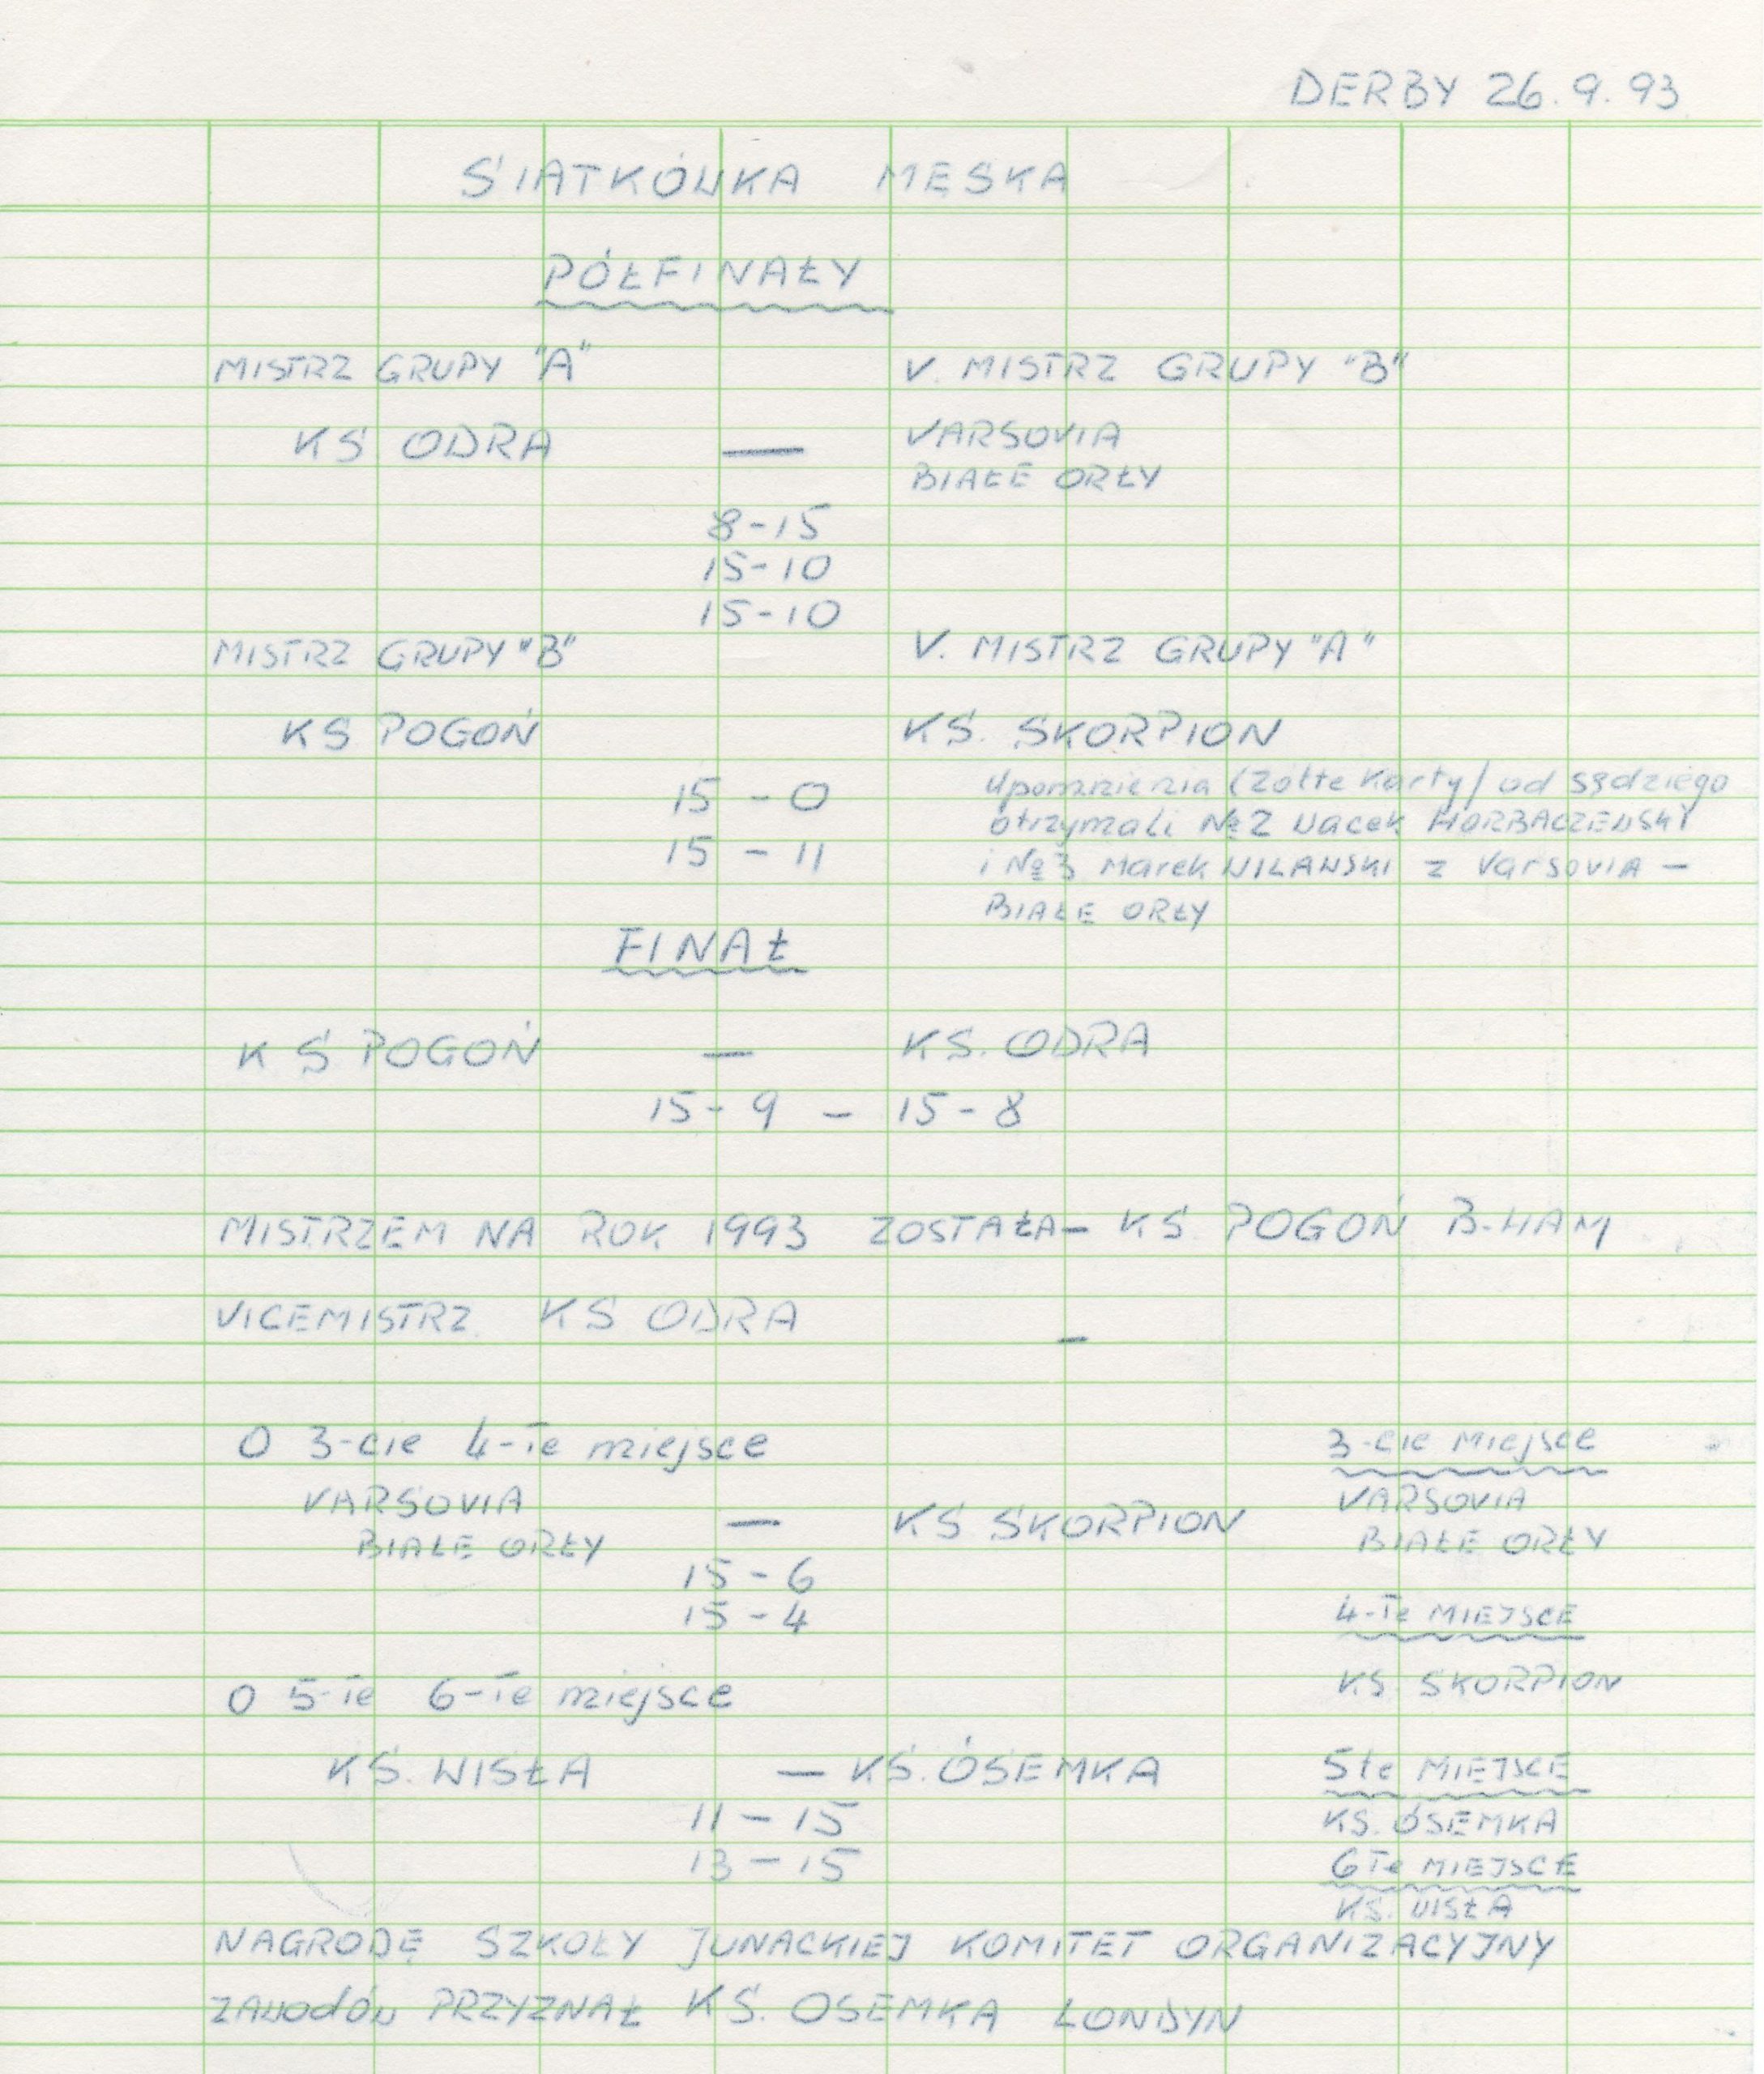 DERBY 26.9.93
SIATKÓWKA MESKA
PÓŁFINAŁY
MISTRZ GRUPY "A" V. MISTRZ GRUPY "B"
KS ODRA — VARSOVIA
BIAŁE ORŁY
8-15
15-10
15-10
MISTRZ GRUPY "B" V. MISTRZ GRUPY "A"
KS POGOŃ KS. SKORPION
15 - 0 Upomnienia (Zółte Karty) od sędziego
otrzymali № 2 Wacek HORBACZEWSKI
15 - 11 i № 3 Marek WILANSKI z Varsovia -
BIAŁE ORŁY
FINAŁ
KS POGOŃ — KS. ODRA
15-9 - 15-8
MISTRZEM NA ROK 1993 ZOSTAŁA - KS POGOŃ B-HAM
VICEMISTRZ KS ODRA -
O 3-cie 4-te miejsce 3-cie miejsce
VARSOVIA — KS SKORPION VARSOVIA
BIAŁE ORŁY BIAŁE ORŁY
15-6
15-4 4-Te MIEJSCE
KS. SKORPION
O 5-te 6-te miejsce
KS. WISŁA — KS. ÓSEMKA 5te MIEJSCE
11-15 KS. ÓSEMKA
13-15 6Te MIEJSCE
KS. WISŁA
NAGRODĘ SZKOŁY JUNACKIEJ KOMITET ORGANIZACYJNY
ZAWODÓW PRZYZNAŁ KS. OSEMKA LONDYN